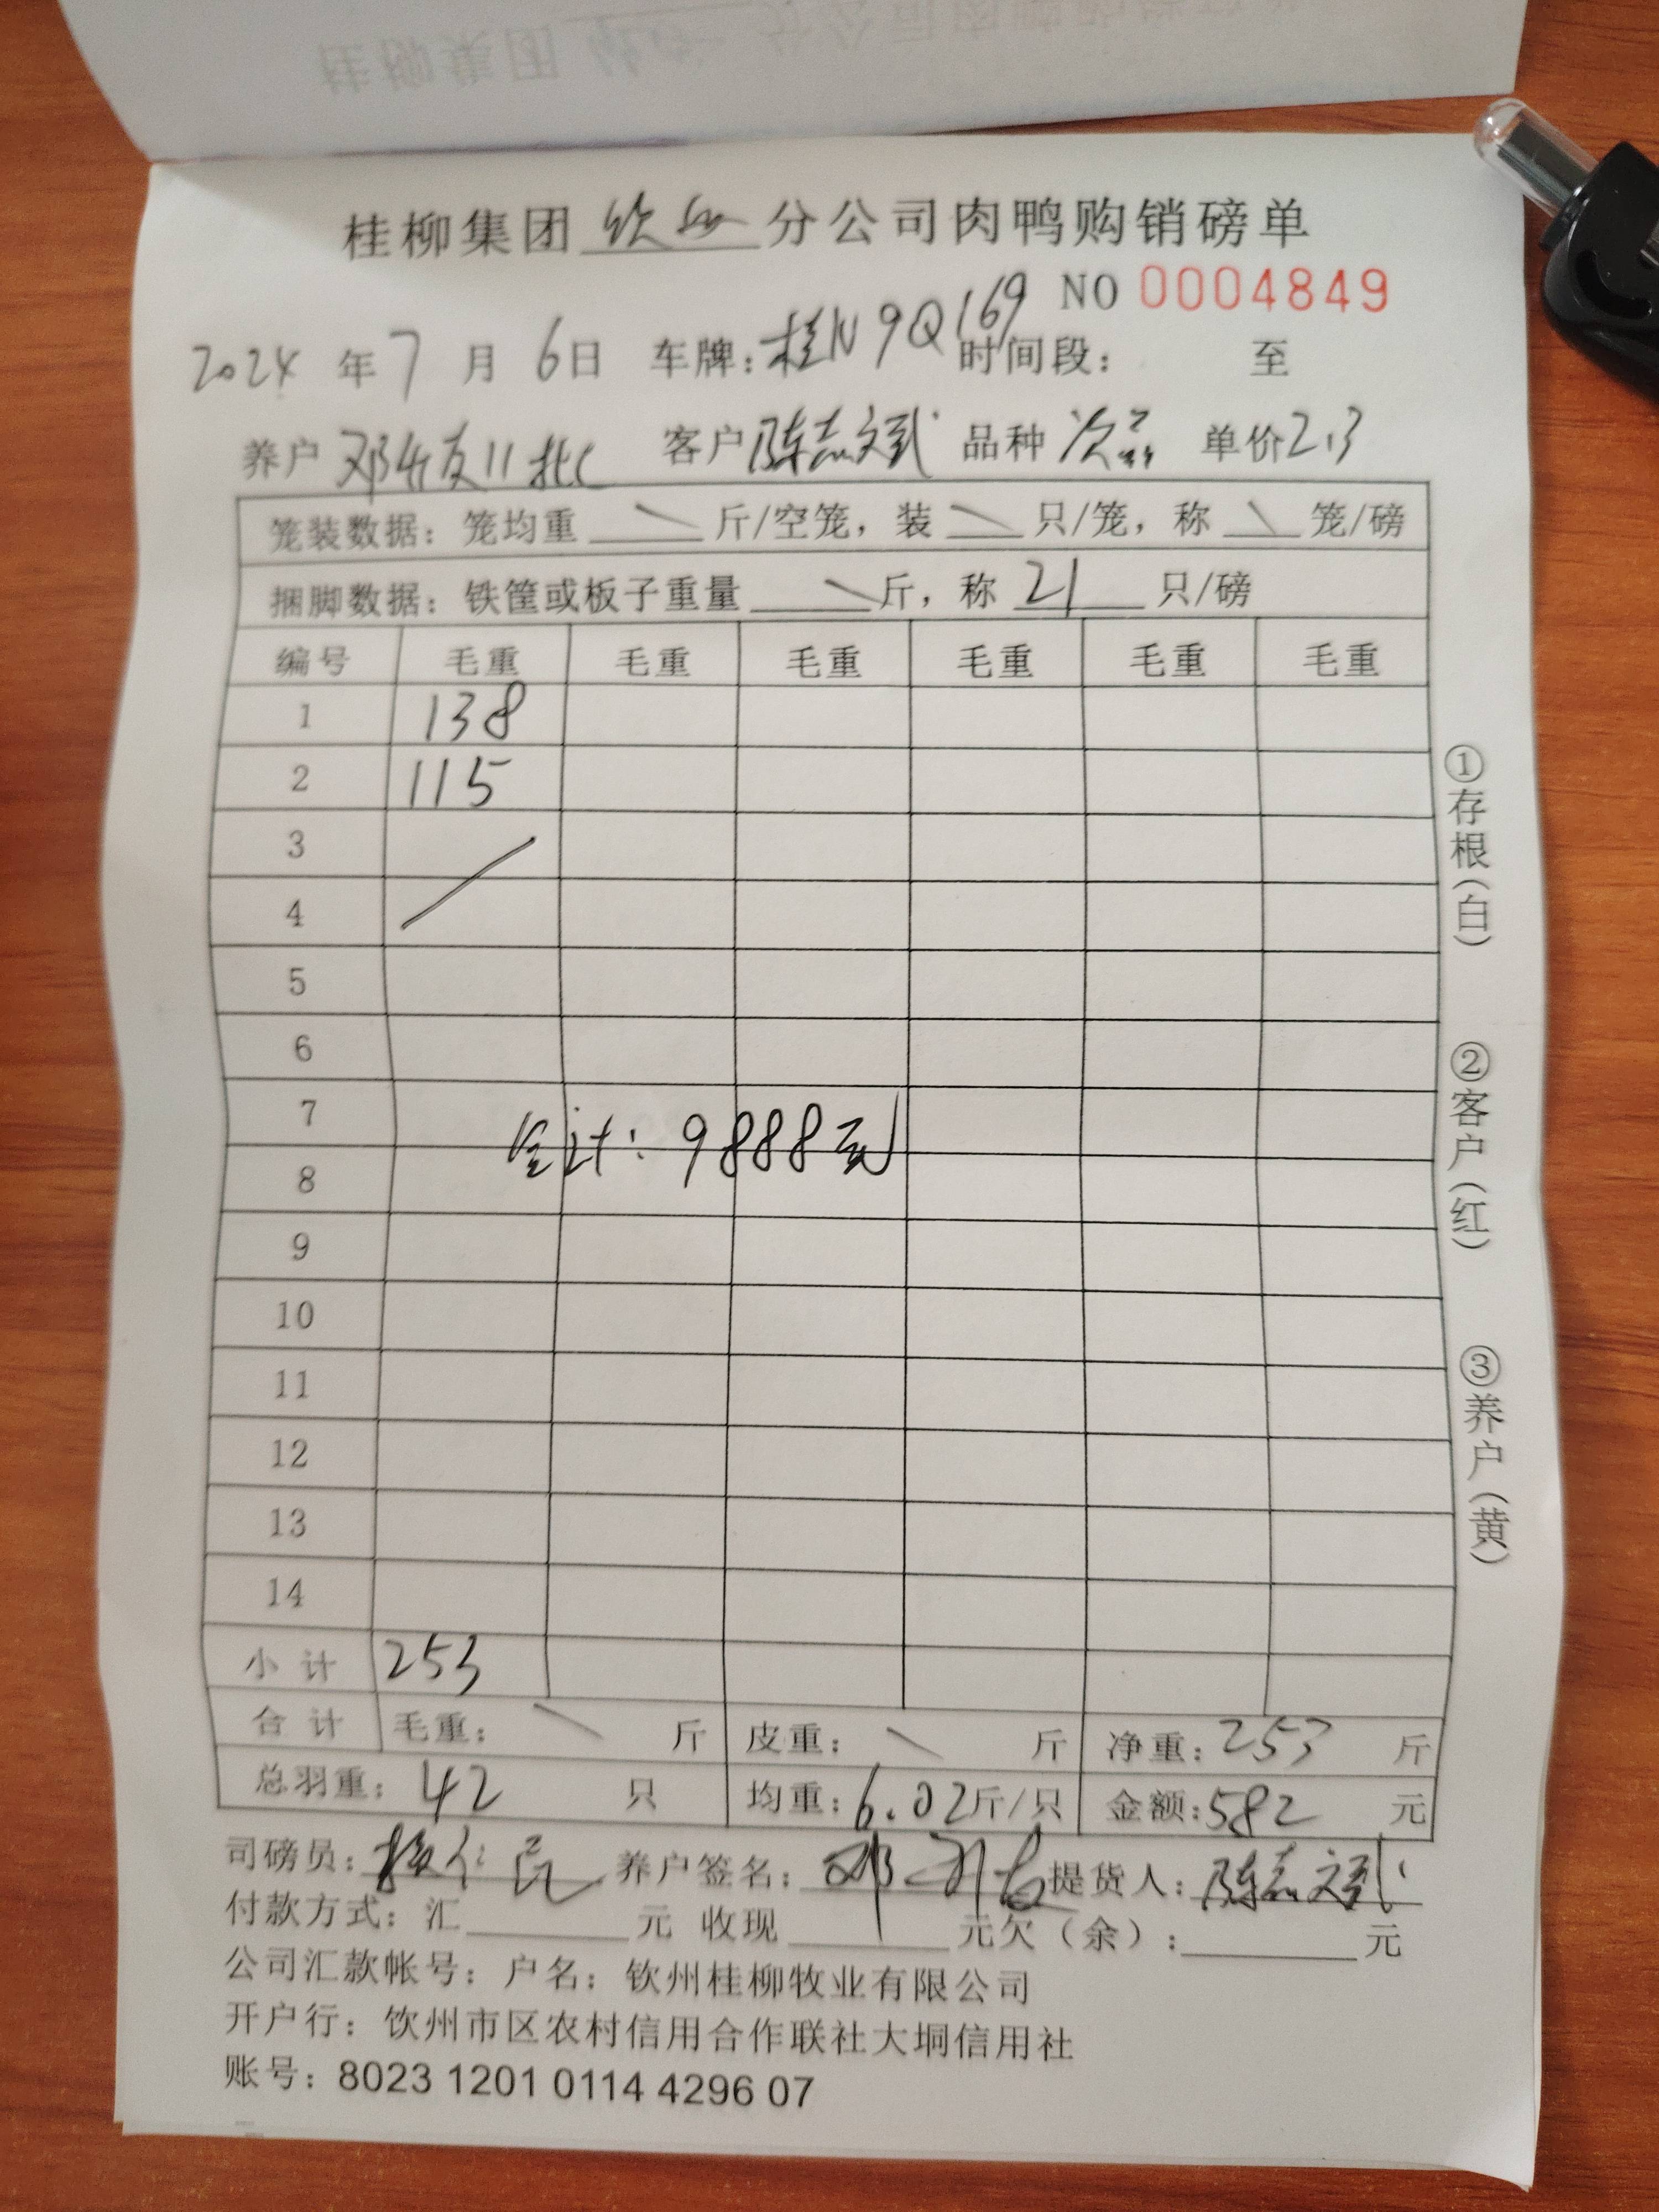 桂柳集团钦州分公司肉鸭购销磅单
NO 0004849
2024 年 7 月 6 日 车牌：桂N 9Q169 时间段： 至
养户 客户 陈志斌 品种 次品 单价 2.3
笼装数据：笼均重 \ 斤/空笼，装 \ 只/笼，称 \ 笼/磅
捆脚数据：铁筐或板子重量 \ 斤，称 21 只/磅
编号 毛重 毛重 毛重 毛重 毛重 毛重
1 138
2 115
3
4
5
6
7
合计：9888元
8
9
10
11
12
13
14
小计 253
合计 毛重： \ 斤 皮重： \ 斤 净重：253 斤
总羽重：42 只 均重：6.02斤/只 金额：582 元
司磅员： 养户签名： 提货人：陈志斌
付款方式：汇 元 收现 元欠（余）： 元
公司汇款帐号：户名：钦州桂柳牧业有限公司
开户行：钦州市区农村信用合作联社大垌信用社
账号：8023 1201 0114 4296 07
①存根（白）
②客户（红）
③养户（黄）